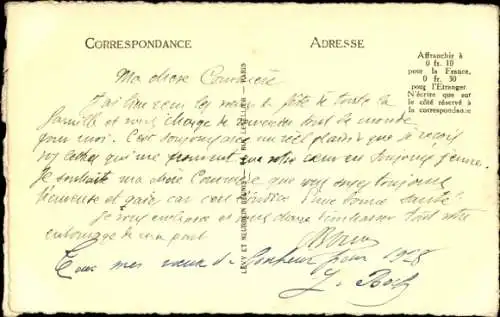 CORRESPONDANCE
ADRESSE
Affranchir à
0 fr. 10
pour la France,
0 fr. 30
pour l'Étranger.
N'écrire que sur
le côté réservé à
la correspondance
LÉVY ET NEURDEIN RÉUNIS, 44, RUE LETELLIER — PARIS
Ma chère Commère
J'ai bien reçu les vœux de fête de toute la
famille et vous charge de remercier tout le monde
pour moi. C'est toujours avec un réel plaisir que je reçois
vos lettres qui me prouvent que votre cœur est toujours jeune.
Je souhaite ma chère Commère que vous soyez toujours
heureuse et gaie, car c'est l'indice d'une bonne santé.
Je vous embrasse et vous charge d'embrasser tout votre
entourage de ma part
Tous mes vœux de bonheur pour 1928